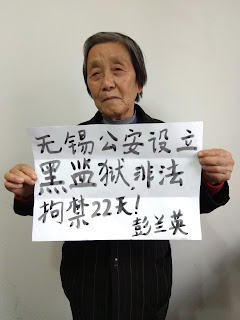 无锡公安设立
黑监狱,非法
拘禁22天!
彭兰英